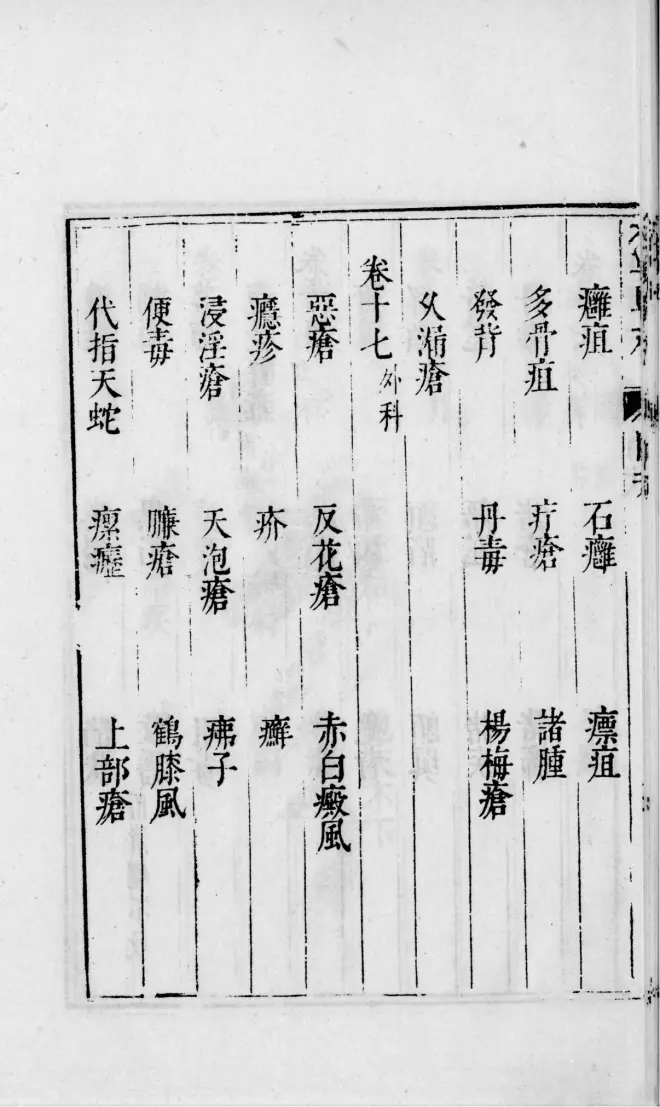 癰疽　石癰　瘭疽
多骨疽　疔瘡　諸腫
發背　丹毒　楊梅瘡
久漏瘡
卷十七外科
惡瘡　反花瘡　赤白癜風
癮疹　疥　癬
浸淫瘡　天泡瘡　疿子
便毒　臁瘡　鶴膝風
代指天蛇　瘰癧　上部瘡